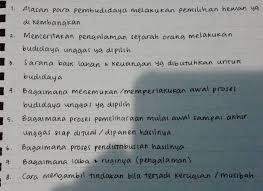 1. Alasan para pembudidaya melakukan pemilihan hewan yg
di kembangkan
2. Menceritakan pengalaman sejarah orang melakukan
budidaya unggas yg dipilih
3. Sarana baik lahan & keuangan yg dibutuhkan untuk
budidaya
4. Bagaimana menemukan / memperlakukan awal proses
budidaya unggas yg dipilih
5. Bagaimana proses pemeliharaan mulai awal sampai akhir
unggas siap dijual / dipanen hasilnya
6. Bagaimana proses pendistribusian hasilnya
7. Bagaimana laba & ruginya (pengalaman)
8. Cara mengambil tindakan bila terjadi kerugian / musibah